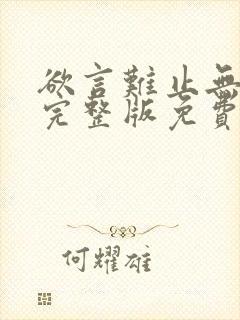 欲言難止無
完整版免費
何耀雄